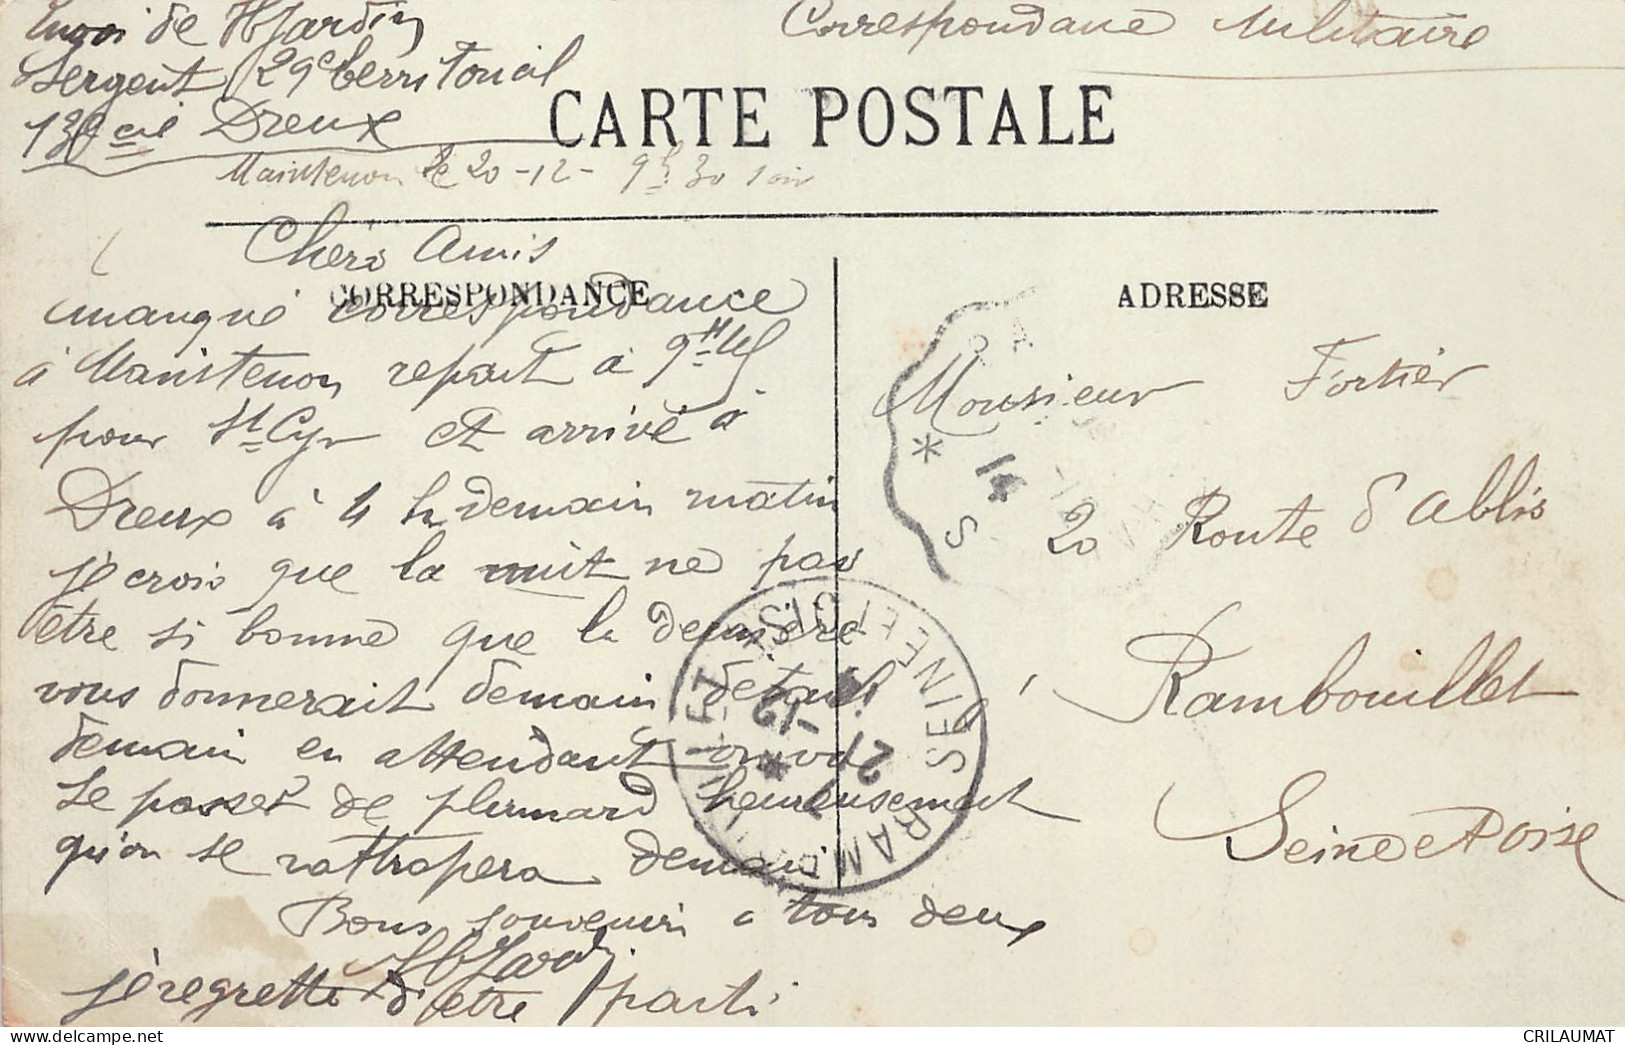 Envoi de H Jardin
Sergent 29e territorial
13e cie Dreux
Correspondance Militaire
CARTE POSTALE
Maintenon le 20-12- 9h 30 soir
Chers Amis
CORRESPONDANCE
manqué correspondance
à Maintenon repart à 9H
pour St Cyr et arrivé à
Dreux à 4 h demain matin
je crois que la nuit ne pas
être si bonne que la dernière
vous donnerait demain détail
demain en attendant on va
se passer de plumard heureusement
qu'on se rattrapera demain
Bons souvenir a tous deux
H Jardin
je regrette d'être parti
ADRESSE
Monsieur Fortier
20 Route d'Ablis
Rambouillet
Seine et Oise
14
S
RAMBOUILLET
*
21 -12
SEINE ET OISE
delcampe.net
CRILAUMAT